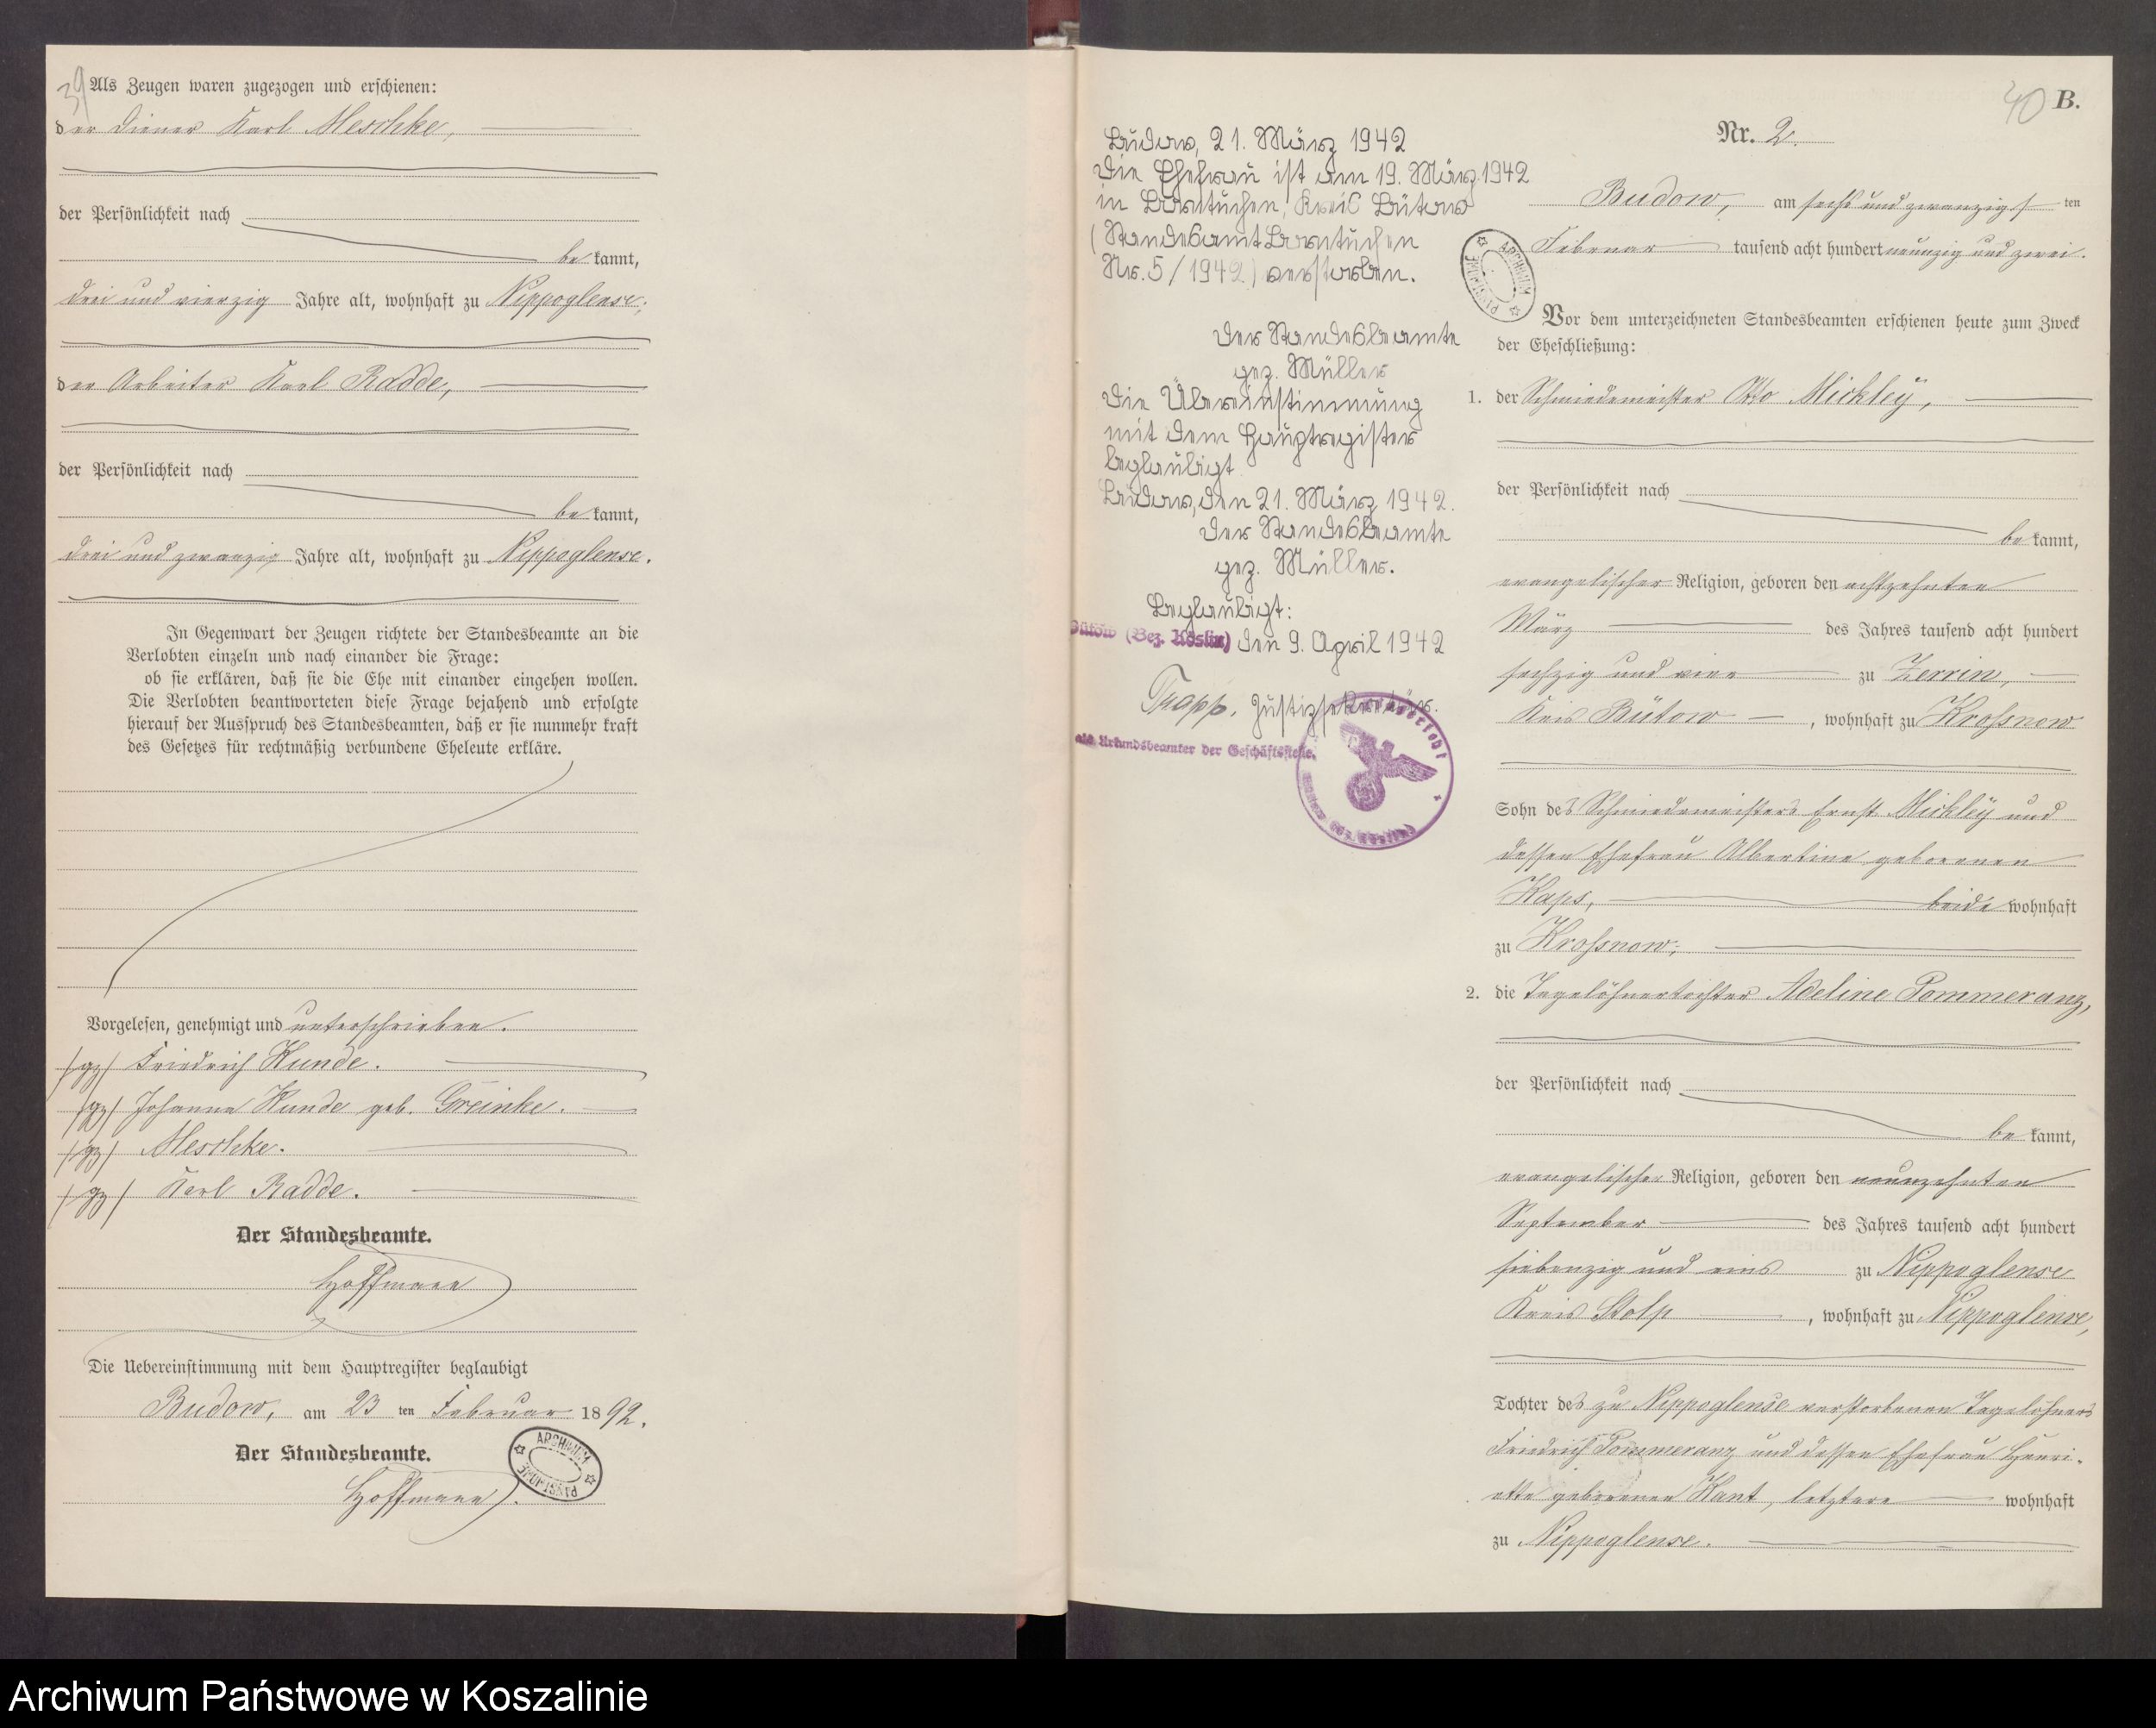 39
Als Zeugen waren zugezogen und erschienen:
der Diener Karl Meschke,
der Persönlichkeit nach
be kannt,
drei und vierzig Jahre alt, wohnhaft zu Nippoglense;
der Arbeiter Karl Radde,
der Persönlichkeit nach
be kannt,
drei und zwanzig Jahre alt, wohnhaft zu Nippoglense.
In Gegenwart der Zeugen richtete der Standesbeamte an die
Verlobten einzeln und nach einander die Frage:
ob sie erklären, daß sie die Ehe mit einander eingehen wollen.
Die Verlobten beantworteten diese Frage bejahend und erfolgte
hierauf der Ausspruch des Standesbeamten, daß er sie nunmehr kraft
des Gesetzes für rechtmäßig verbundene Eheleute erkläre.
Vorgelesen, genehmigt und unterschrieben.
/gz/ Friedrich Kunde.
/gz/ Johanna Kunde geb. Greinke.
/gz/ Meschke.
/gz/ Karl Radde.
Der Standesbeamte.
Hoffmann
Die Uebereinstimmung mit dem Hauptregister beglaubigt
Budow, am 23 ten Februar 1892.
Der Standesbeamte.
Hoffmann.
ARCHIWUM PAŃSTWOWE
Budow, 21. März 1942
Die Ehefrau ist am 19. März 1942
in Borntuchen, Kreis Bütow
(Standesamt Borntuchen
Nr. 5/1942) verstorben.
Der Standesbeamte
gez. Müller
Die Übereinstimmung
mit dem Hauptregister
beglaubigt
Budow, den 21. März 1942.
Der Standesbeamte
gez. Müller.
Beglaubigt:
Bütow (Bez. Köslin) den 9. April 1942
Trapp, Justizsekretär.
als Urkundsbeamter der Geschäftsstelle.
40 B.
Nr. 2.
Budow, am sechs und zwanzigs ten
Februar tausend acht hundert neunzig und zwei.
ARCHIWUM PAŃSTWOWE
Vor dem unterzeichneten Standesbeamten erschienen heute zum Zweck
der Eheschließung:
1. der Schmiedemeister Otto Mickley,
der Persönlichkeit nach
be kannt,
evangelischer Religion, geboren den achtzehnten
März des Jahres tausend acht hundert
sechzig und vier zu Zerrin,
Kreis Bütow, wohnhaft zu Krossnow
Sohn des Schmiedemeisters Ernst Mickley und
dessen Ehefrau Albertine geborenen
Kaps, beide wohnhaft
zu Krossnow;
2. die Tagelöhnertochter Adeline Pommeranz,
der Persönlichkeit nach
be kannt,
evangelischer Religion, geboren den neunzehnten
September des Jahres tausend acht hundert
siebenzig und eins zu Nippoglense
Kreis Stolp, wohnhaft zu Nippoglense,
Tochter des zu Nippoglense verstorbenen Tagelöhners
Friedrich Pommeranz und dessen Ehefrau Henri-
ette geborenen Kant, letztere wohnhaft
zu Nippoglense.
Archiwum Państwowe w Koszalinie